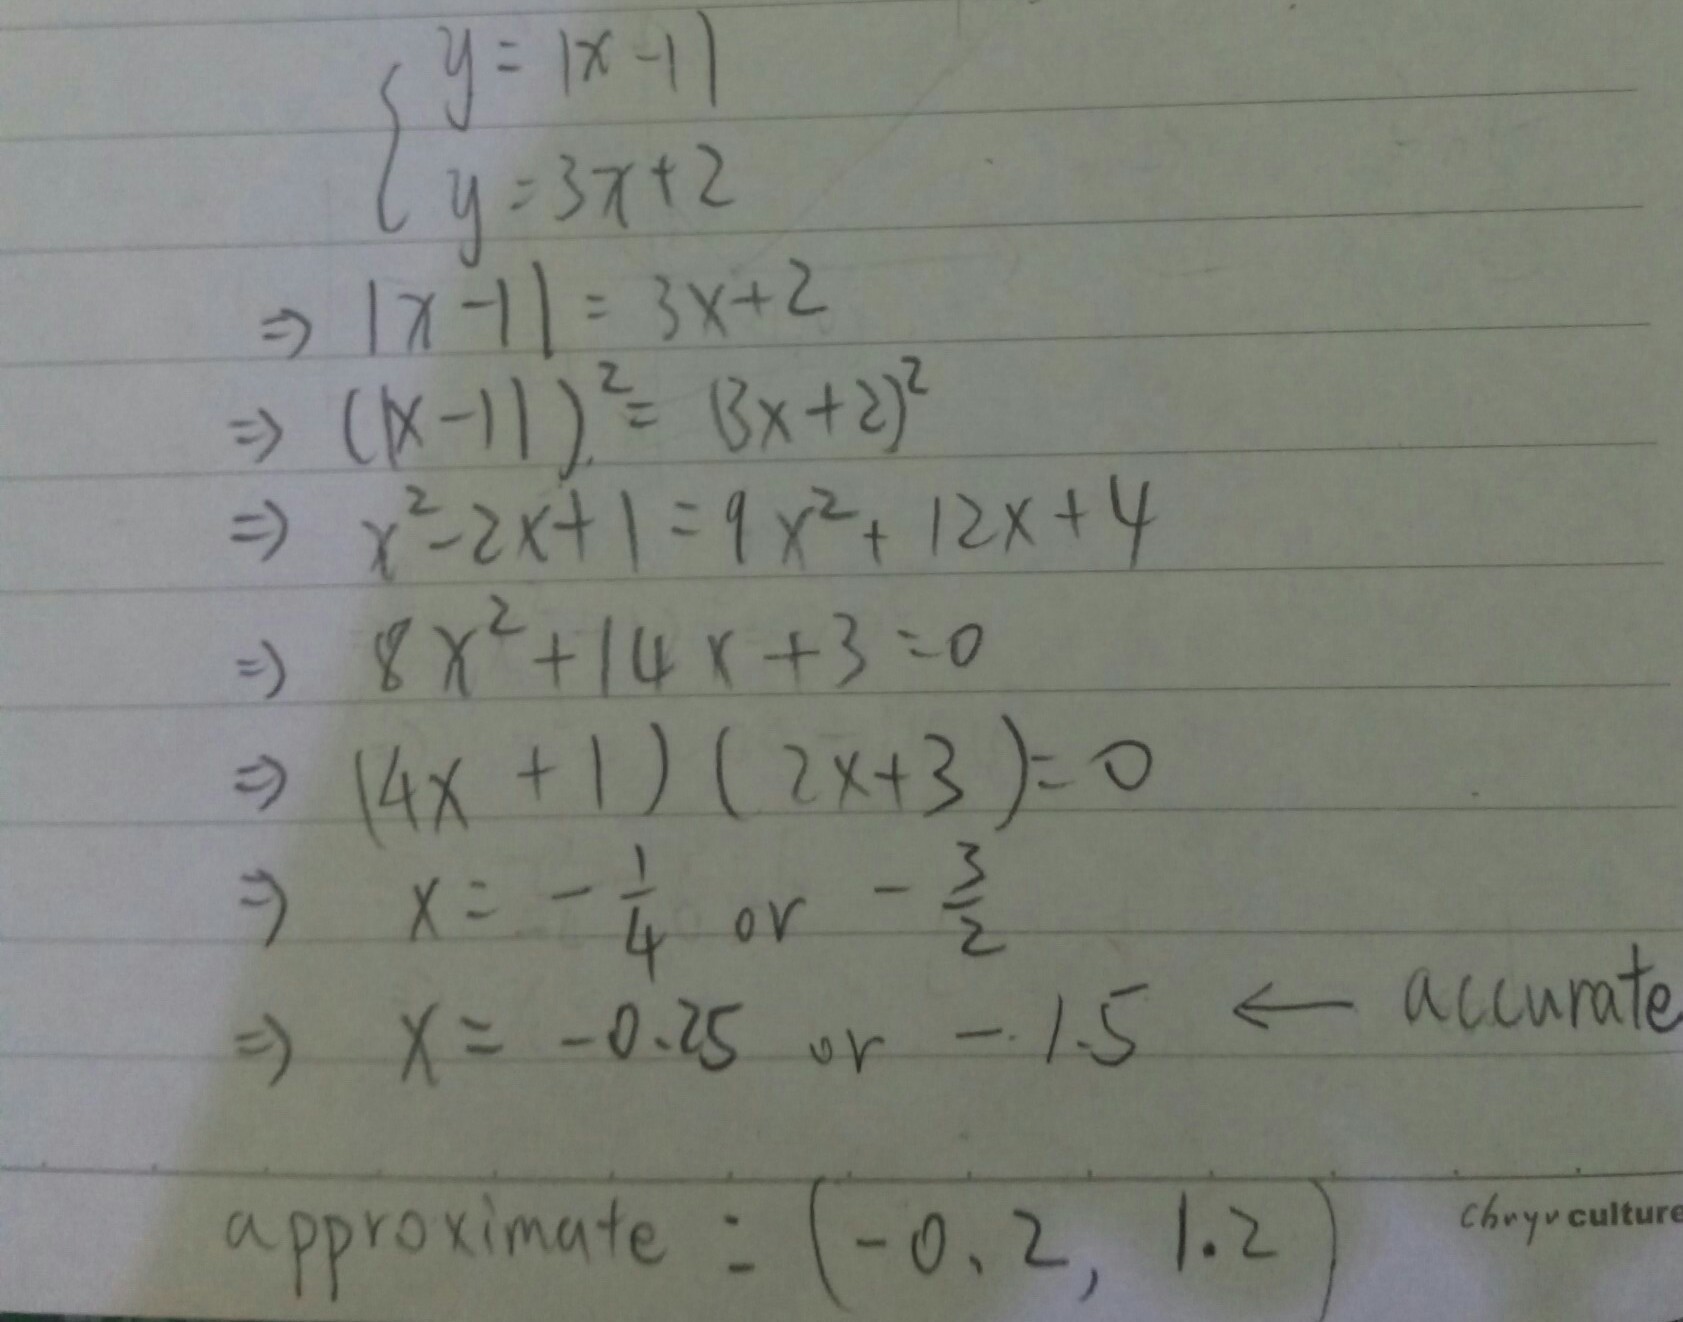 y = |x - 1|
y = 3x + 2
⇒ |x - 1| = 3x + 2
⇒ (|x - 1|)² = (3x + 2)²
⇒ x² - 2x + 1 = 9x² + 12x + 4
⇒ 8x² + 14x + 3 = 0
⇒ (4x + 1)(2x + 3) = 0
⇒ x = -1/4 or -3/2
⇒ x = -0.25 or -1.5 ← accurate
approximate : (-0.2, 1.2)
culture